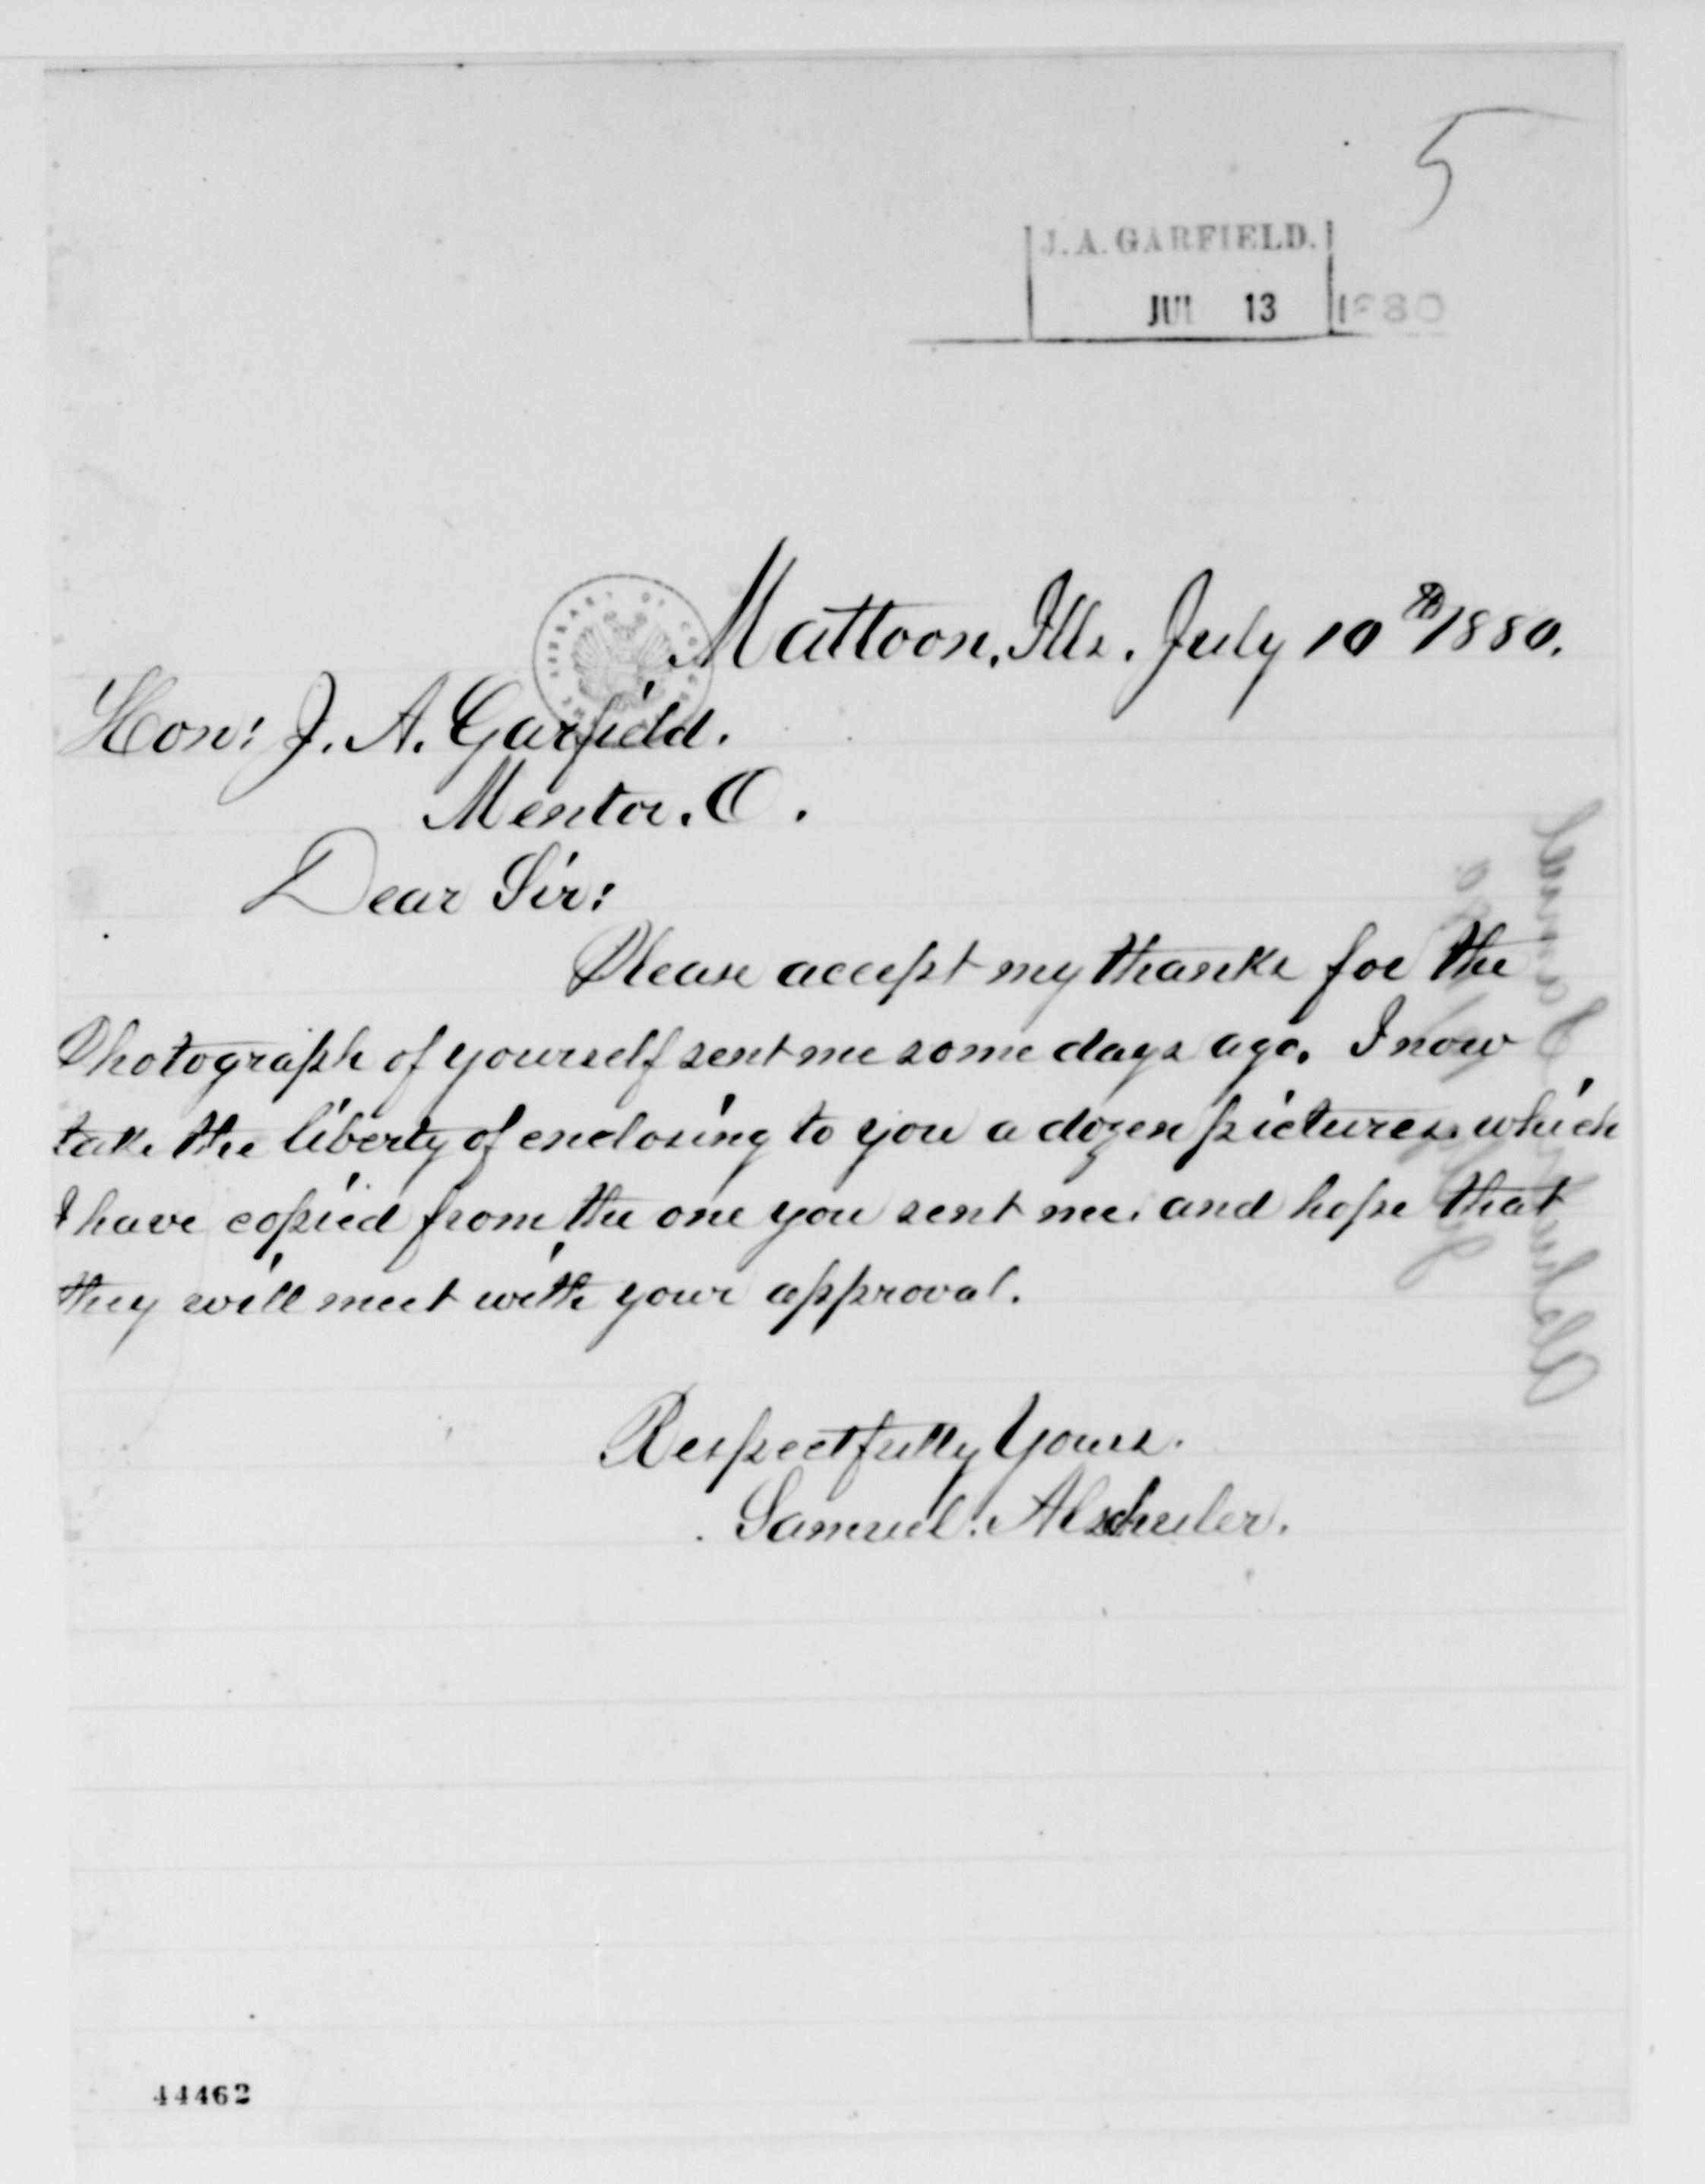 5
J. A. GARFIELD.
JUL 13 1880
Mattoon, Ills. July 10th 1880.
Hon: J. A. Garfield.
Mentor. O.
Dear Sir:
Please accept my thanks for the
Photograph of yourself sent me some days ago. I now
take the liberty of enclosing to you a dozen pictures which
I have copied from the one you sent me. and hope that
they will meet with your approval.
Respectfully Yours.
Samuel. Alschuler.
44462